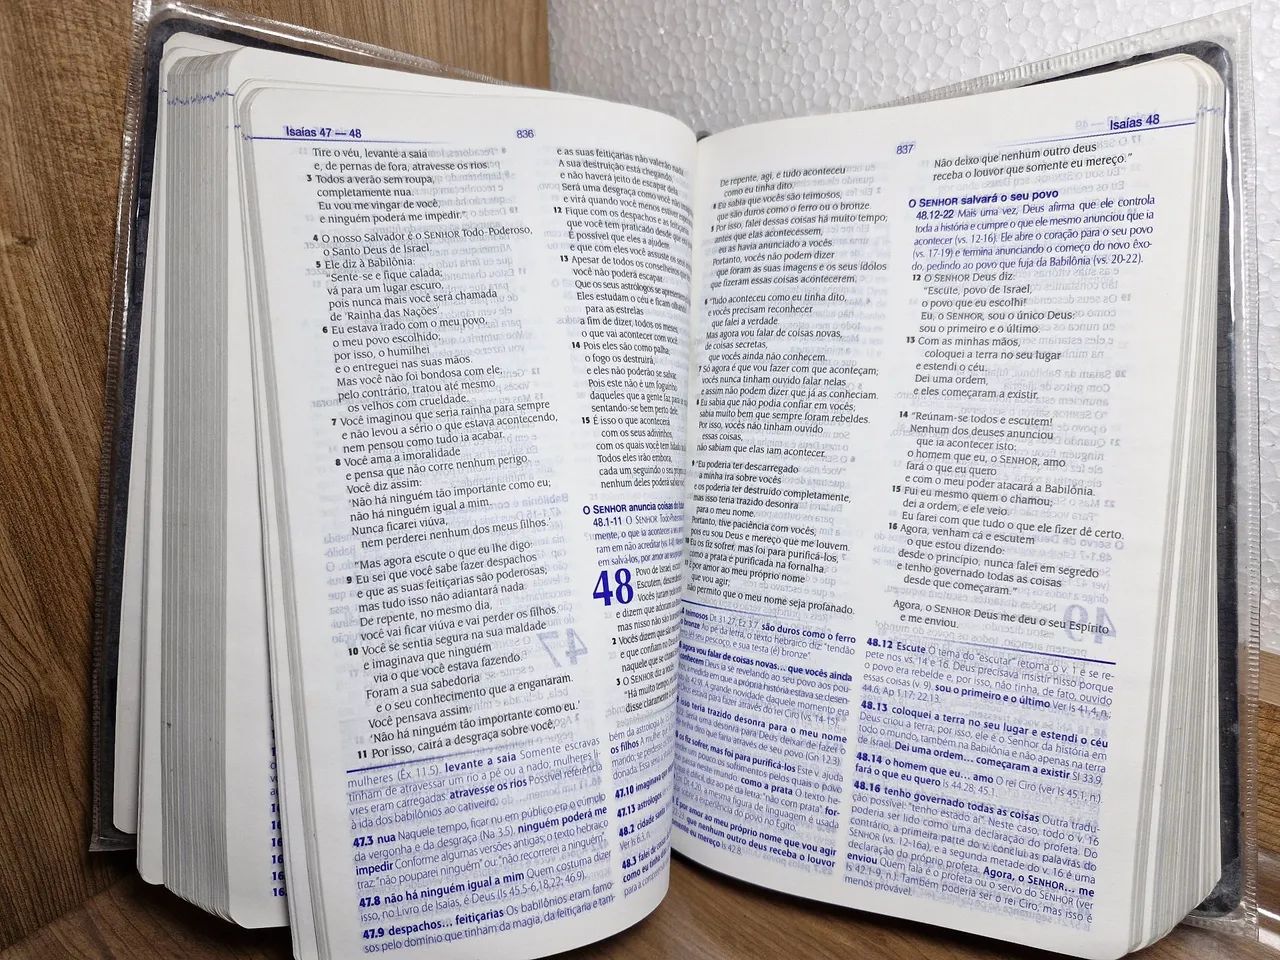 Isaías 47 — 48
836
Tire o véu, levante a saia
e, de pernas de fora, atravesse os rios.
3 Todos a verão sem roupa,
completamente nua.
Eu vou me vingar de você,
e ninguém poderá me impedir.”
4 O nosso Salvador é o SENHOR Todo-Poderoso,
o Santo Deus de Israel.
5 Ele diz à Babilônia:
“Sente-se e fique calada;
vá para um lugar escuro,
pois nunca mais você será chamada
de ‘Rainha das Nações’.
6 Eu estava irado com o meu povo,
o meu povo escolhido;
por isso, o humilhei
e o entreguei nas suas mãos.
Mas você não foi bondosa com ele;
pelo contrário, tratou até mesmo
os velhos com crueldade.
7 Você imaginou que seria rainha para sempre
e não levou a sério o que estava acontecendo,
nem pensou como tudo ia acabar.
8 Você ama a imoralidade
e pensa que não corre nenhum perigo.
Você diz assim:
‘Não há ninguém tão importante como eu;
não há ninguém igual a mim.
Nunca ficarei viúva,
nem perderei nenhum dos meus filhos.’
“Mas agora escute o que eu lhe digo:
9 Eu sei que você sabe fazer despachos
e que as suas feitiçarias são poderosas;
mas tudo isso não adiantará nada.
De repente, no mesmo dia,
você vai ficar viúva e vai perder os filhos.
10 Você se sentia segura na sua maldade
e imaginava que ninguém
via o que você estava fazendo.
Foram a sua sabedoria
e o seu conhecimento que a enganaram.
Você pensava assim:
‘Não há ninguém tão importante como eu.’
11 Por isso, cairá a desgraça sobre você,
mulheres (Êx 11.5). levante a saia Somente escravas
tinham de atravessar um rio a pé ou a nado; mulheres li-
vres eram carregadas. atravesse os rios Possível referência
à ida dos babilônios ao cativeiro.
47.3 nua Naquele tempo, ficar nu em público era o cúmulo
da vergonha e da desgraça (Na 3.5). ninguém poderá me
impedir Conforme algumas versões antigas; o texto hebraico
traz: “não pouparei ninguém” ou “não recorrerei a ninguém”.
47.8 não há ninguém igual a mim Quem costuma dizer
isso, no Livro de Isaías, é Deus (Is 45.5-6,18,22; 46.9).
47.9 despachos... feitiçarias Os babilônios eram famo-
sos pelo domínio que tinham da magia, da feitiçaria e tam-
e as suas feitiçarias não valerão nada
A sua destruição está chegando,
e não haverá jeito de escapar dela.
Será uma desgraça como você não
e virá quando você menos estiver
12 Fique com os despachos e as feitiçarias
que você tem praticado desde que
É possível que eles a ajudem
e que com eles você assuste os seus
13 Apesar de todos os conselheiros que
você não poderá escapar.
Que os seus astrólogos se apresentem
Eles estudam o céu e ficam olhando
para as estrelas
a fim de dizer, todos os meses,
o que vai acontecer com você.
14 Pois eles são como palha;
o fogo os destruirá,
e eles não poderão se salvar.
Pois este não é um foguinho
daqueles que a gente faz para se
sentando-se bem perto dele.
15 É isso o que acontecerá
com os seus adivinhos,
com os quais você tem lidado
Todos eles irão embora,
cada um seguindo o seu
nenhum deles poderá salvar
O SENHOR anuncia coisas do
48.1-11 O SENHOR Todo-Podero
mente, o que ia acontecer
ram em não acreditar
em salvá-los, por amor
48 Povo de Israel,
Escutem, descendentes
Vocês juram
e dizem que adoram
mas nisso não são
2 Vocês dizem que
e que confiam no
naquele que se chama
3 O SENHOR diz a
“Há muito tempo,
disse claramente
bém da astrologia
mundo; se perdesse
os filhos A mulher que
donada. Essa
47.10 imaginava que
47.13 astrólogos
48.2 cidade santa
Ver 6.3, n.
48.3 falei de coisas
como eu tinha dito
para a
837
Isaías 48
De repente, agi, e tudo aconteceu
como eu tinha dito.
4 Eu sabia que vocês são teimosos,
que são duros como o ferro ou o bronze.
5 Por isso, falei dessas coisas há muito tempo;
antes que elas acontecessem,
eu as havia anunciado a vocês.
Portanto, vocês não podem dizer
que foram as suas imagens e os seus ídolos
que fizeram essas coisas acontecerem.
6 “Tudo aconteceu como eu tinha dito,
e vocês precisam reconhecer
que falei a verdade.
Mas agora vou falar de coisas novas,
de coisas secretas,
que vocês ainda não conhecem.
7 Só agora é que vou fazer com que aconteçam;
vocês nunca tinham ouvido falar nelas
e assim não podem dizer que já as conheciam.
8 Eu sabia que não podia confiar em vocês;
sabia muito bem que sempre foram rebeldes.
Por isso, vocês não tinham ouvido
essas coisas,
não sabiam que elas iam acontecer.
9 “Eu poderia ter descarregado
a minha ira sobre vocês
e os poderia ter destruído completamente,
mas isso teria trazido desonra
para o meu nome.
Portanto, tive paciência com vocês,
pois eu sou Deus e mereço que me louvem.
10 Eu os fiz sofrer, mas foi para purificá-los,
como a prata é purificada na fornalha.
11 É por amor ao meu próprio nome
que vou agir;
não permito que o meu nome seja profanado.
teimosos Dt 31.27; Ez 3.7. são duros como o ferro
bronze Ao pé da letra, o texto hebraico diz: “tendão
(é) seu pescoço, e sua testa (é) bronze”.
agora vou falar de coisas novas... que vocês ainda
conhecem Deus ia se revelando ao seu povo aos pou-
à medida em que a própria história estava se desen-
42.9. A grande novidade daquele momento era
estava para fazer através do rei Ciro (vs. 14-15).
isto teria trazido desonra para o meu nome
Seria uma desonra para Deus deixar de fazer o
tinha dito que faria através de seu povo (Gn 12.3).
os fiz sofrer, mas foi para purificá-los Este v. ajuda
um pouco os sofrimentos pelos quais o povo
passa neste mundo. como a prata O texto he-
ao pé da letra: “não com prata”; for-
Dt 4.20; a mesma figura de linguagem é usada
a experiência do povo no Egito.
É por amor ao meu próprio nome que vou agir
que nenhum outro deus receba o louvor
mente eu mereço Is 42.8.
Não deixo que nenhum outro deus
receba o louvor que somente eu mereço.”
O SENHOR salvará o seu povo
48.12-22 Mais uma vez, Deus afirma que ele controla
toda a história e cumpre o que ele mesmo anunciou que ia
acontecer (vs. 12-16). Ele abre o coração para o seu povo
(vs. 17-19) e termina anunciando o começo do novo êxo-
do, pedindo ao povo que fuja da Babilônia (vs. 20-22).
12 O SENHOR Deus diz:
“Escute, povo de Israel,
o povo que eu escolhi!
Eu, o SENHOR, sou o único Deus;
sou o primeiro e o último.
13 Com as minhas mãos,
coloquei a terra no seu lugar
e estendi o céu.
Dei uma ordem,
e eles começaram a existir.
14 “Reúnam-se todos e escutem!
Nenhum dos deuses anunciou
que ia acontecer isto:
o homem que eu, o SENHOR, amo
fará o que eu quero
e com o meu poder atacará a Babilônia.
15 Fui eu mesmo quem o chamou;
dei a ordem, e ele veio.
Eu farei com que tudo o que ele fizer dê certo.
16 Agora, venham cá e escutem
o que estou dizendo:
desde o princípio, nunca falei em segredo
e tenho governado todas as coisas
desde que começaram.”
Agora, o SENHOR Deus me deu o seu Espírito
e me enviou.
48.12 Escute O tema do “escutar” retoma o v. 1 e se re-
pete nos vs. 14 e 16. Deus precisava insistir nisso porque
o povo era rebelde e, por isso, não tinha, de fato, ouvido
essas coisas (v. 9). sou o primeiro e o último Ver Is 41.4, n.;
44.6; Ap 1.17; 22.13.
48.13 coloquei a terra no seu lugar e estendi o céu
Deus criou a terra; por isso, ele é o Senhor da história em
todo o mundo, também na Babilônia e não apenas na terra
de Israel. Dei uma ordem... começaram a existir Sl 33.9.
48.14 o homem que eu... amo O rei Ciro (ver Is 45.1, n.).
fará o que eu quero Is 44.28; 45.1.
48.16 tenho governado todas as coisas Outra tradu-
ção possível: “tenho estado aí”. Neste caso, todo o v. 16
poderia ser lido como uma declaração do profeta. Do
contrário, a primeira parte do v. conclui as palavras do
SENHOR (vs. 12-16a), e a segunda metade do v. 16 é uma
declaração do próprio profeta. Agora, o SENHOR... me
enviou Quem fala é o profeta ou o servo do SENHOR (ver
Is 42.1-9, n.). Também poderia ser o rei Ciro, mas isso é
menos provável.